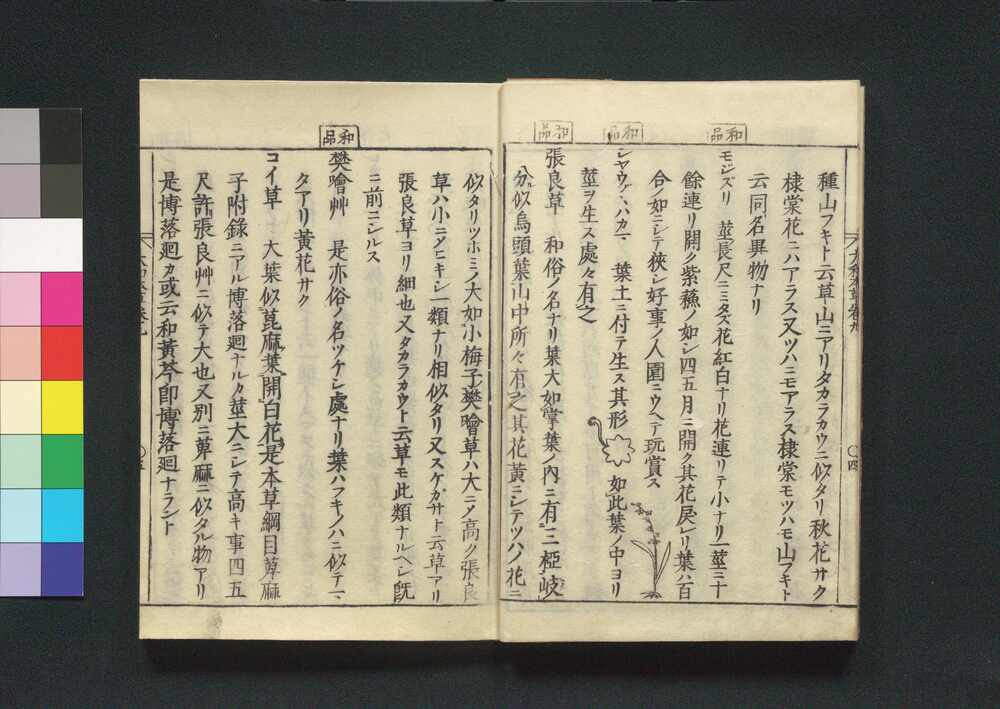 種山フキト云草山ニアリタカラカウニ似タリ秋花サク
棣棠花ニハアラス又ツハニモアラス棣棠モツハモ山フキト
云同名異物ナリ
和品
モジズリ 莖長尺ニミタズ花紅白ナリ花連リテ小ナリ一莖三十
餘連リ開ク紫蘓ノ如シ四五月ニ開ク其花戻レリ葉ハ百
合ノ如ニシテ狹シ好事ノ人園ニウヘテ玩賞ス
和品
シヤウゾハカマ 葉土ニ付テ生ス其形 如此葉ノ中ヨリ
莖ヲ生ス處々有之
和品
張良草 和俗ノ名ナリ葉大如掌葉ノ内ニ有三椏岐
分似烏頭葉山中所々有之其花黃ニシテツハノ花ニ
大和本草卷九
〇四
似タリツホミノ大如小梅子樊噲草ハ大ニメ高ク張良
草ハ小ニメヒキシ一類ナリ相似タリ又スケガサト云草アリ
張良草ヨリ細也又タカラカウト云草モ此類ナルヘシ既
ニ前ニシルス
和品
樊噲艸 是亦俗ノ名ツケシ處ナリ葉ハフキノハニ似テ
タアリ黃花サク
コイ草 大葉似萞麻葉開白花是本草綱目萆麻
子附錄ニアル博落廻ナルカ莖大ニシテ高キ事四五
尺許張良艸ニ似テ大也又別ニ萆麻ニ似タル物アリ
是博落廻カ或云和黃芩即博落廻ナラント
〇五